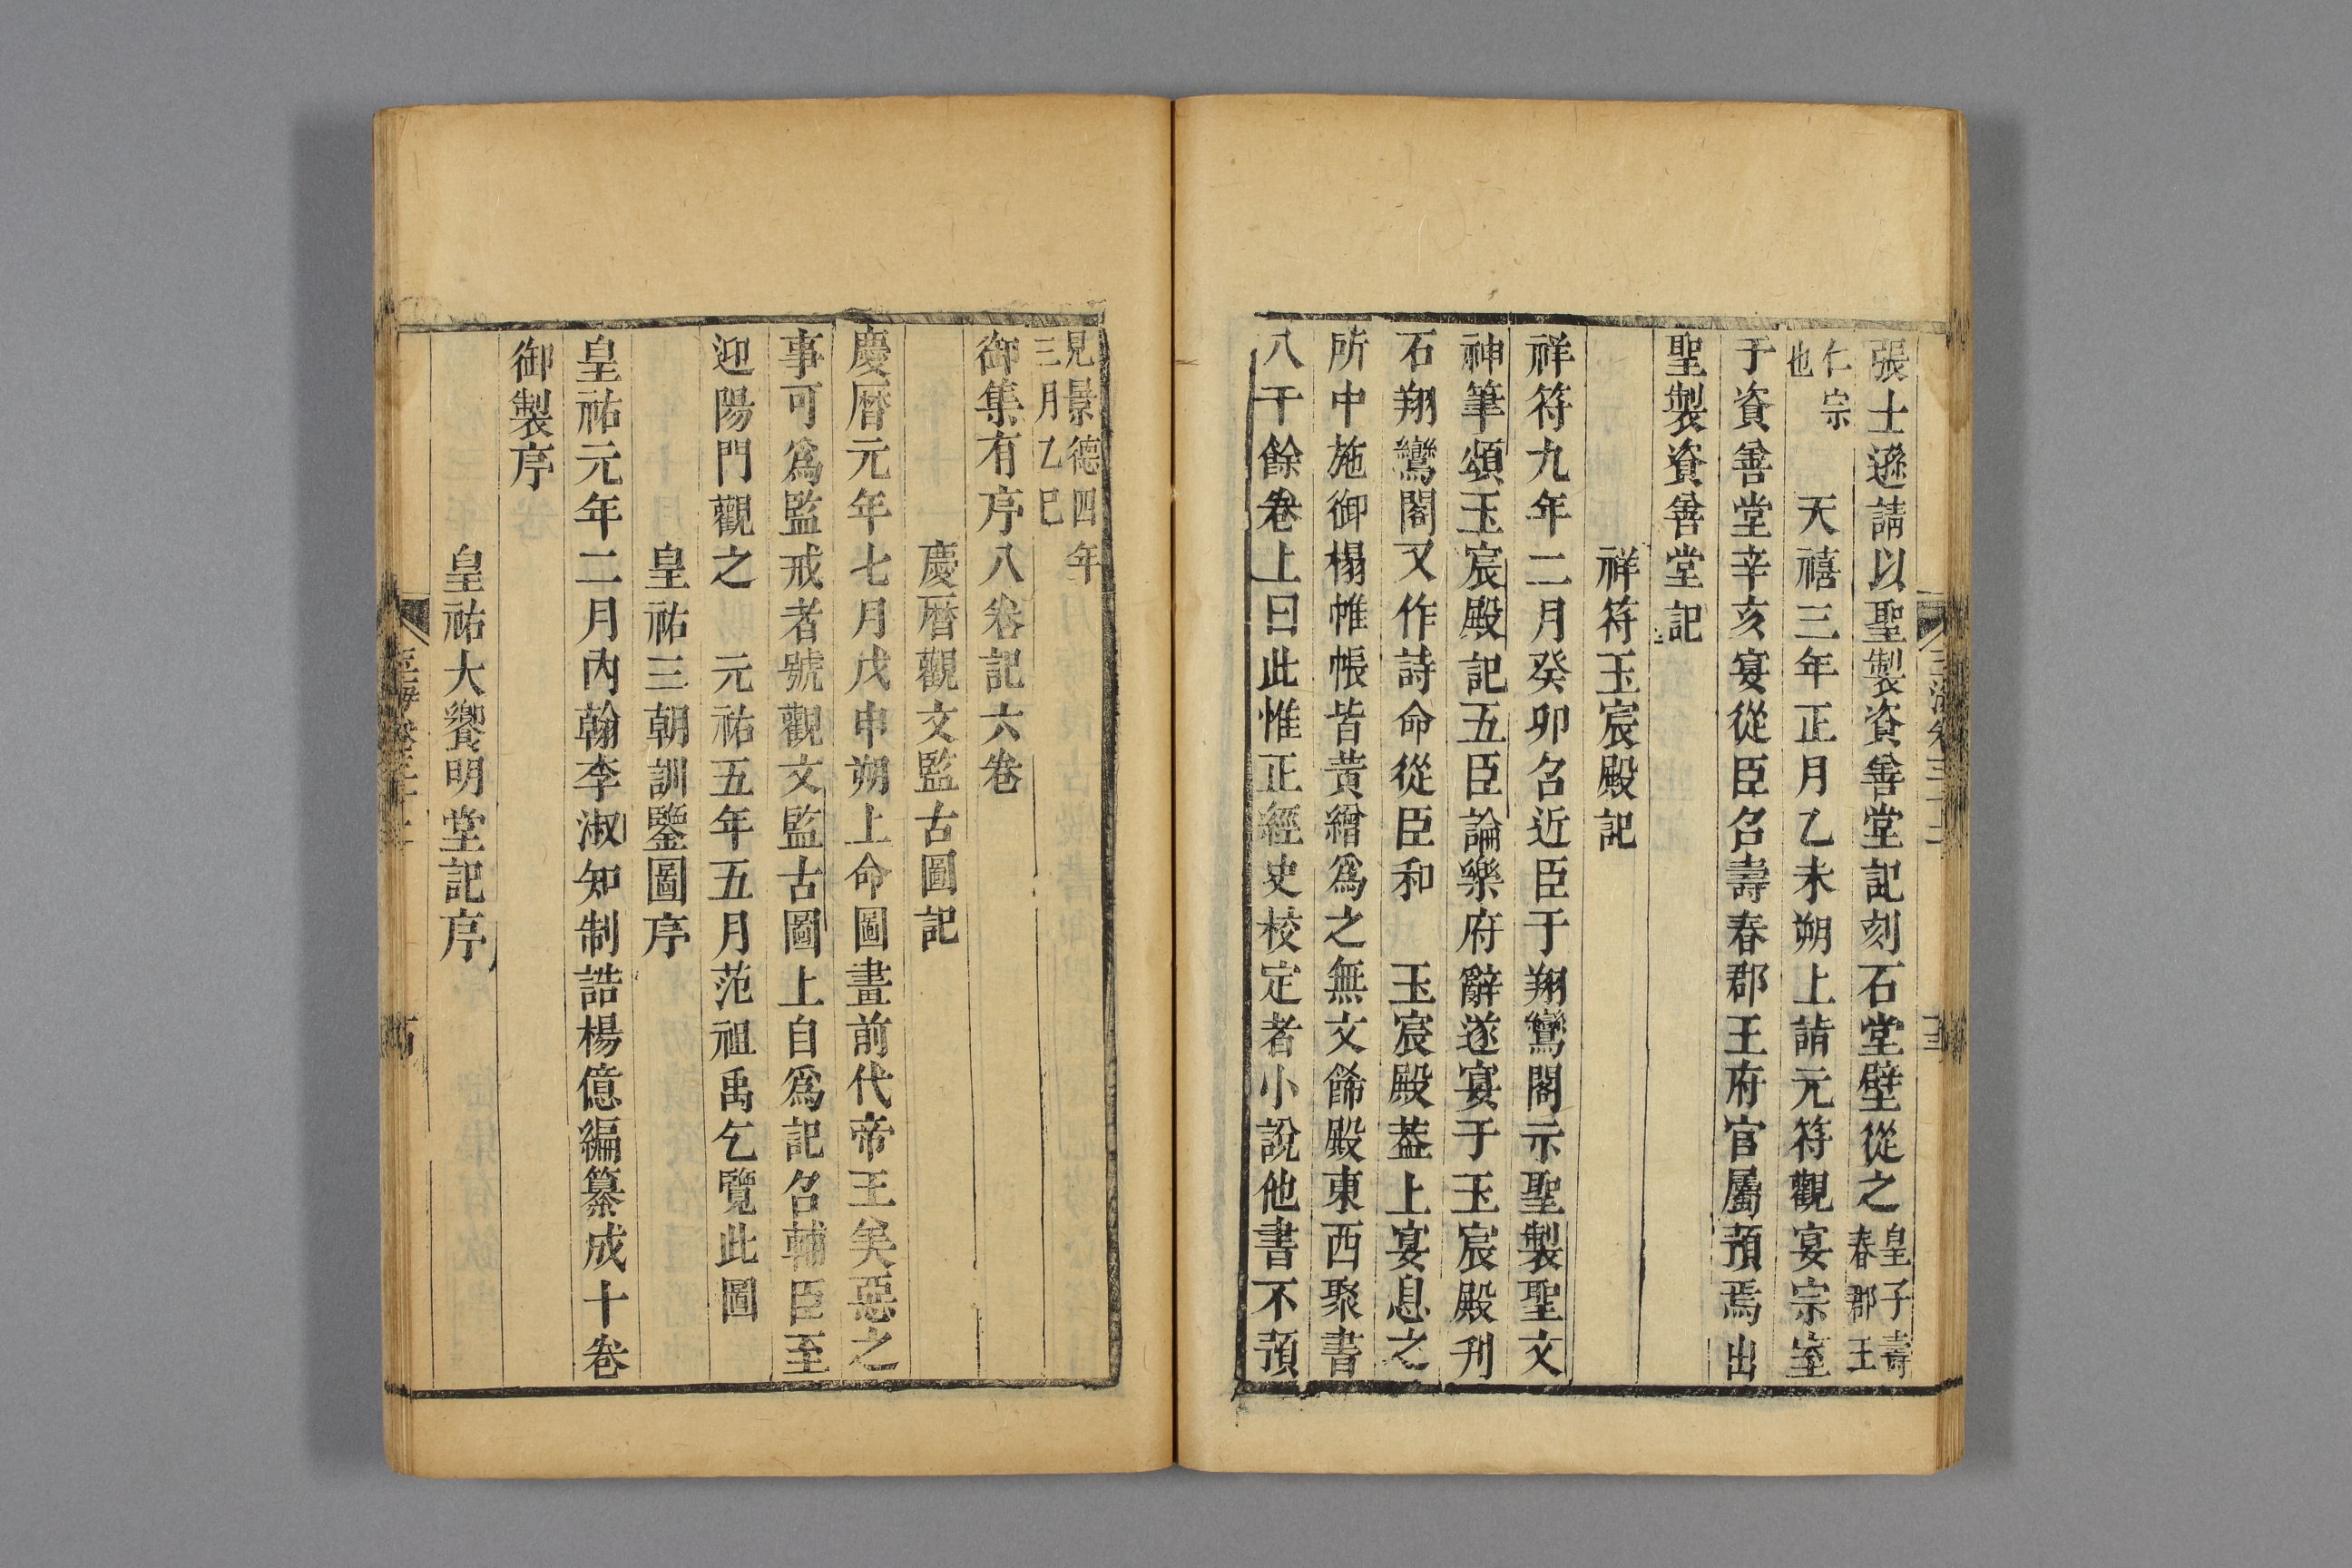 張士遜請以聖製資善堂記刻石堂壁從之皇子壽春郡王
仁宗也　天禧三年正月乙未朔上請元符觀宴宗室
于資善堂辛亥宴從臣召壽春郡王府官屬預焉出
聖製資善堂記
祥符玉宸殿記
祥符九年二月癸卯召近臣于翔鸞閣示聖製聖文
神筆頌玉宸殿記五臣論樂府辭遂宴于玉宸殿刋
石翔鸞閣又作詩命從臣和　玉宸殿葢上宴息之
所中施御榻帷帳皆黃繒爲之無文餙殿東西聚書
八千餘卷上曰此惟正經史校定者小說他書不預
見景德四年三月乙巳
御集有序八卷記六卷
慶曆觀文監古圖記
慶曆元年七月戊申朔上命圖畫前代帝王美惡之
事可爲監戒者號觀文監古圖上自爲記召輔臣至
迎陽門觀之　元祐五年五月范祖禹乞覽此圖
皇祐三朝訓鑒圖序
皇祐元年二月內翰李淑知制誥楊億編纂成十卷
御製序
皇祐大饗明堂記序